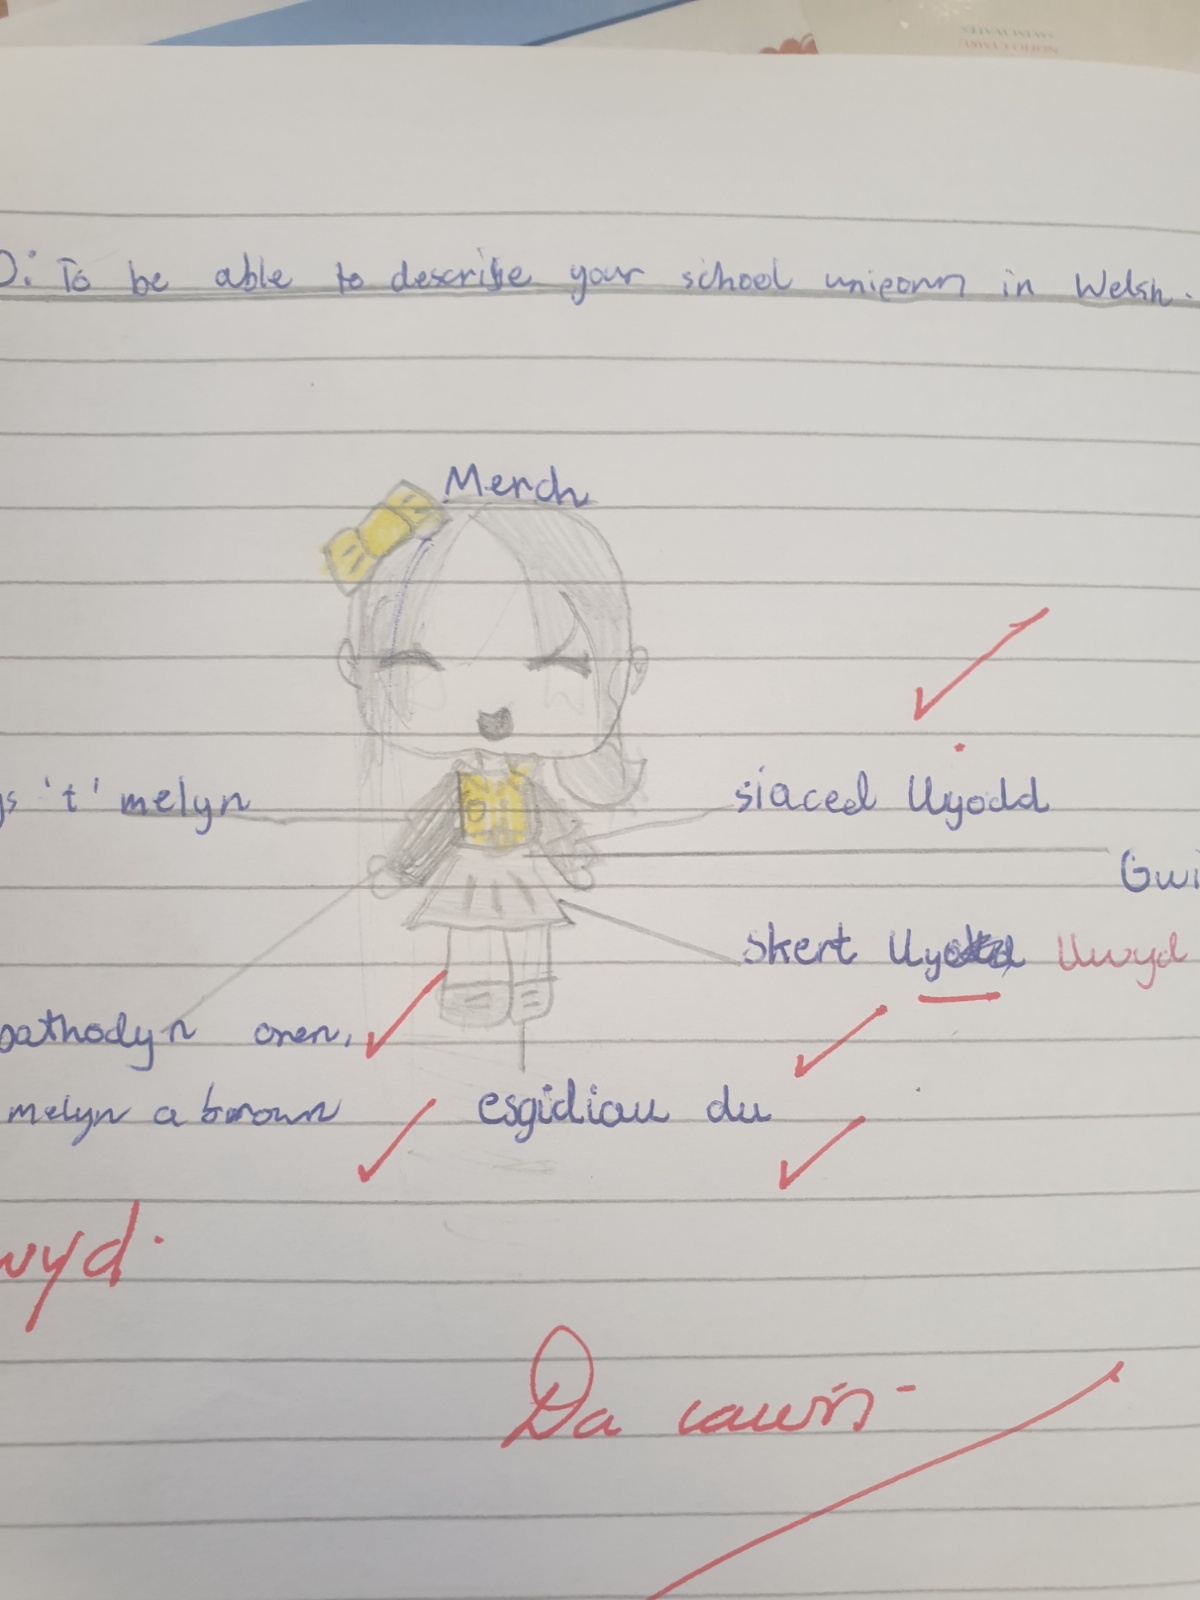 O: To be able to describe your school uniform in Welsh.
Merch
's 't' melyn
siaced llyodd
Gwi
skert llwyd
pathodyn oren,
melyn a brown
esgidiau du
wyd.
Da iawn